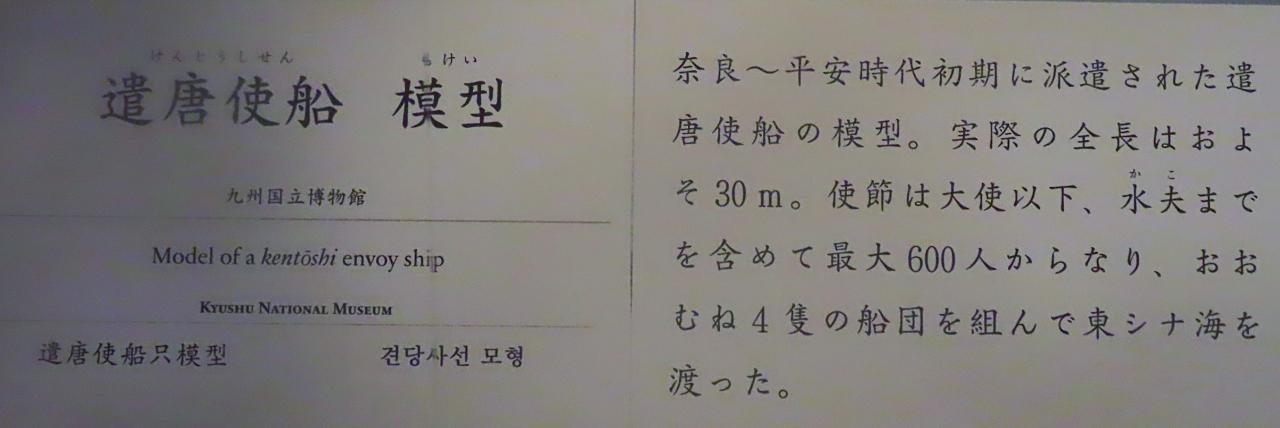 けんとうしせん けい
遣唐使船 模型
九州国立博物館
Model of a kentōshi envoy ship
KYUSHU NATIONAL MUSEUM
遣唐使船只模型 견당사선 모형
奈良～平安時代初期に派遣された遣
唐使船の模型。実際の全長はおよ
そ30m。使節は大使以下、水夫まで
かこ
を含めて最大600人からなり、おお
むね4隻の船団を組んで東シナ海を
渡った。